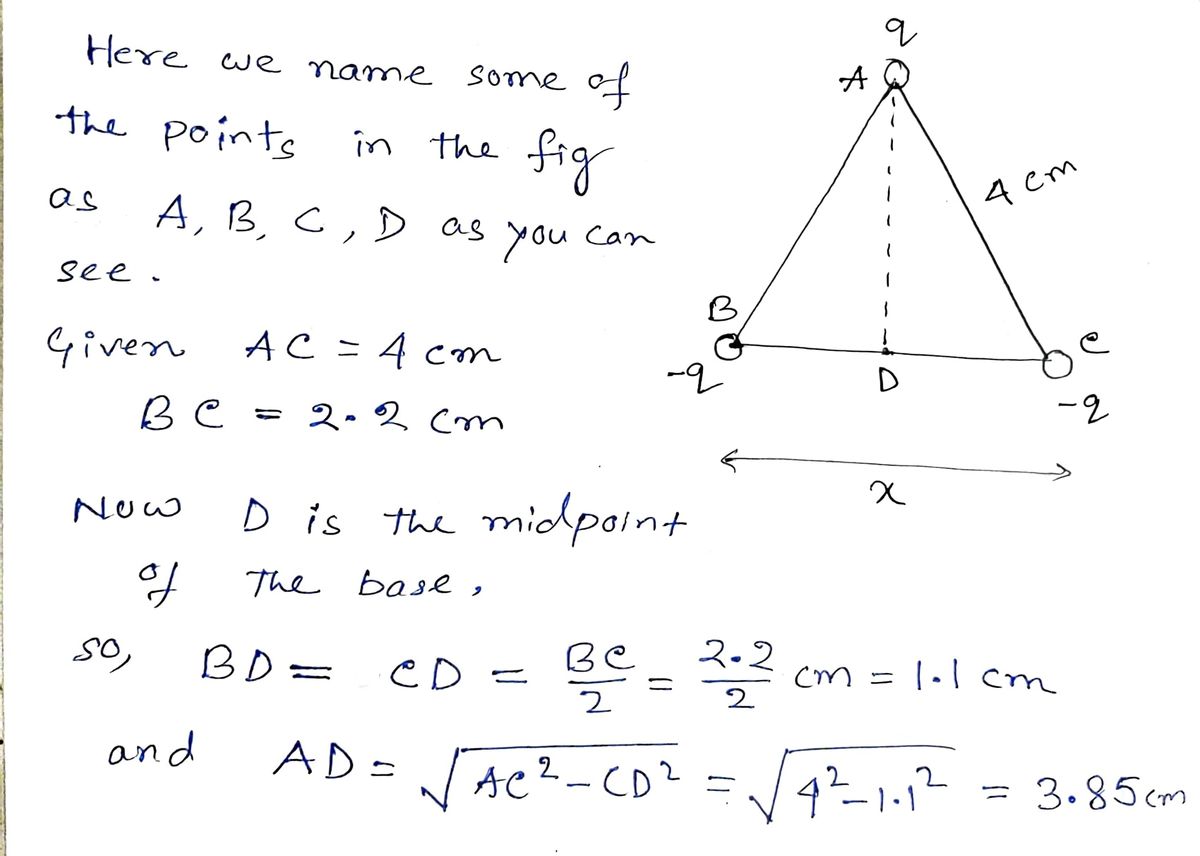 Here we name some of
the points in the fig
as A, B, C, D as you can
see.
Given AC = 4 cm
BC = 2.2 cm
Now D is the midpoint
of The base,
so, BD = CD = BC/2 = 2.2/2 cm = 1.1 cm
and AD = √AC²-CD² = √4²-1.1² = 3.85cm
q
A
4 cm
B
-q
D
C
-q
x